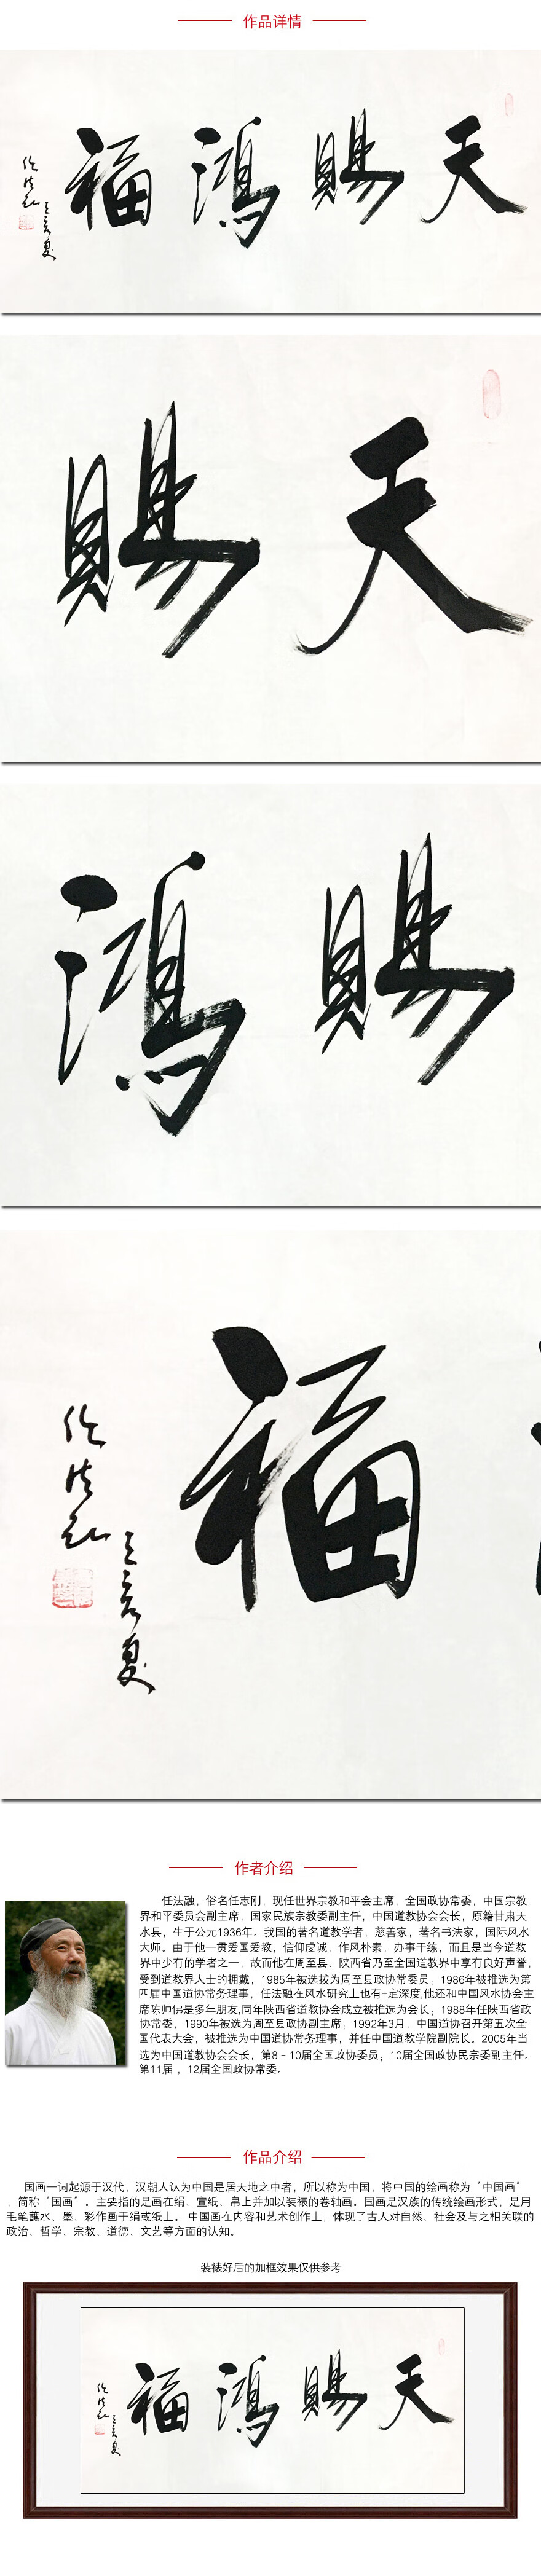 作品详情
天赐鸿福
任法融
天赐
赐鸿
福
任法融
作者介绍
任法融，俗名任志刚，现任世界宗教和平会主席，全国政协常委，中国宗教
界和平委员会副主席，国家民族宗教委副主任，中国道教协会会长，原籍甘肃天
水县，生于公元1936年。我国的著名道教学者，慈善家，著名书法家，国际风水
大师。由于他一贯爱国爱教，信仰虔诚，作风朴素，办事干练，而且是当今道教
界中少有的学者之一，故而他在周至县、陕西省乃至全国道教界中享有良好声誉，
受到道教界人士的拥戴，1985年被选拔为周至县政协常委员；1986年被推选为第
四届中国道协常务理事，任法融在风水研究上也有-定深度,他还和中国风水协会主
席陈帅佛是多年朋友,同年陕西省道教协会成立被推选为会长；1988年任陕西省政
协常委，1990年被选为周至县政协副主席；1992年3月，中国道协召开第五次全
国代表大会，被推选为中国道协常务理事，并任中国道教学院副院长。2005年当
选为中国道教协会会长，第8－10届全国政协委员；10届全国政协民宗委副主任。
第11届 ，12届全国政协常委。
作品介绍
国画一词起源于汉代，汉朝人认为中国是居天地之中者，所以称为中国，将中国的绘画称为“中国画”
，简称“国画”。主要指的是画在绢、宣纸、帛上并加以装裱的卷轴画。国画是汉族的传统绘画形式，是用
毛笔蘸水、墨、彩作画于绢或纸上。 中国画在内容和艺术创作上，体现了古人对自然、社会及与之相关联的
政治、哲学、宗教、道德、文艺等方面的认知。
装裱好后的加框效果仅供参考
天赐鸿福
任法融